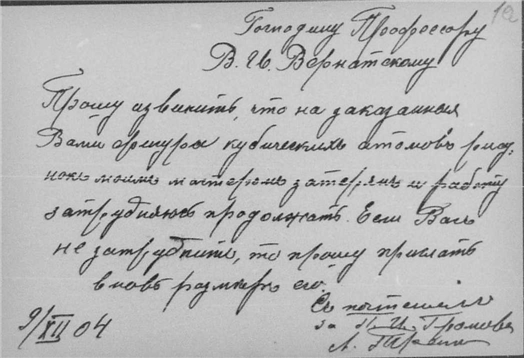 12
Господину Профессору
В. И. Вернатскому
Прошу извинить, что на заказанныя
Вами фигуры кубическихъ атомовъ рису-
нокъ моимъ мастеромъ затерянъ и работу
затрудняюсь продолжать. Если Васъ
не затруднитъ, то прошу прислать
вновь размеръ его.
Съ почтеніемъ
за И. Громова
9/XII 04